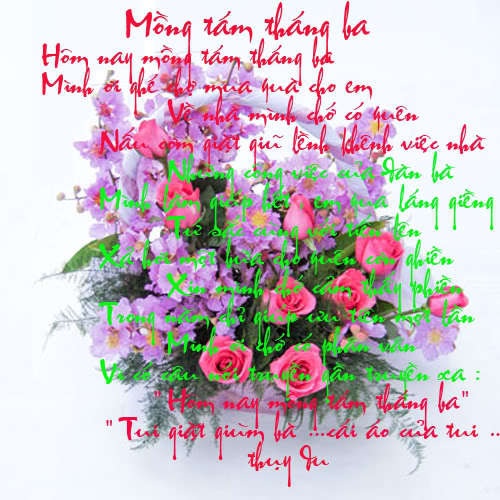 Mồng tám tháng ba
Hôm nay mồng tám tháng ba
Mình ơi ghé chợ mua quà cho em
Về nhà mình chớ có quên
Nấu cơm giặt giũ lênh khênh việc nhà
Những công việc của đàn bà
Mình làm giúp hết , em qua láng giềng
Tứ sắc cùng với tiến lên
Xả hơi một bữa cho quên cơn ghiền
Xin mình chớ cằn thấy phiền
Trong năm chỉ giúp ưu tiên một lần
Mình ơi chớ có phân vân
Vì có câu nói truyền gần truyền xa :
" Hôm nay mồng tám tháng ba"
" Tui giặt giùm bà ...cái áo của tui ..
thụy du